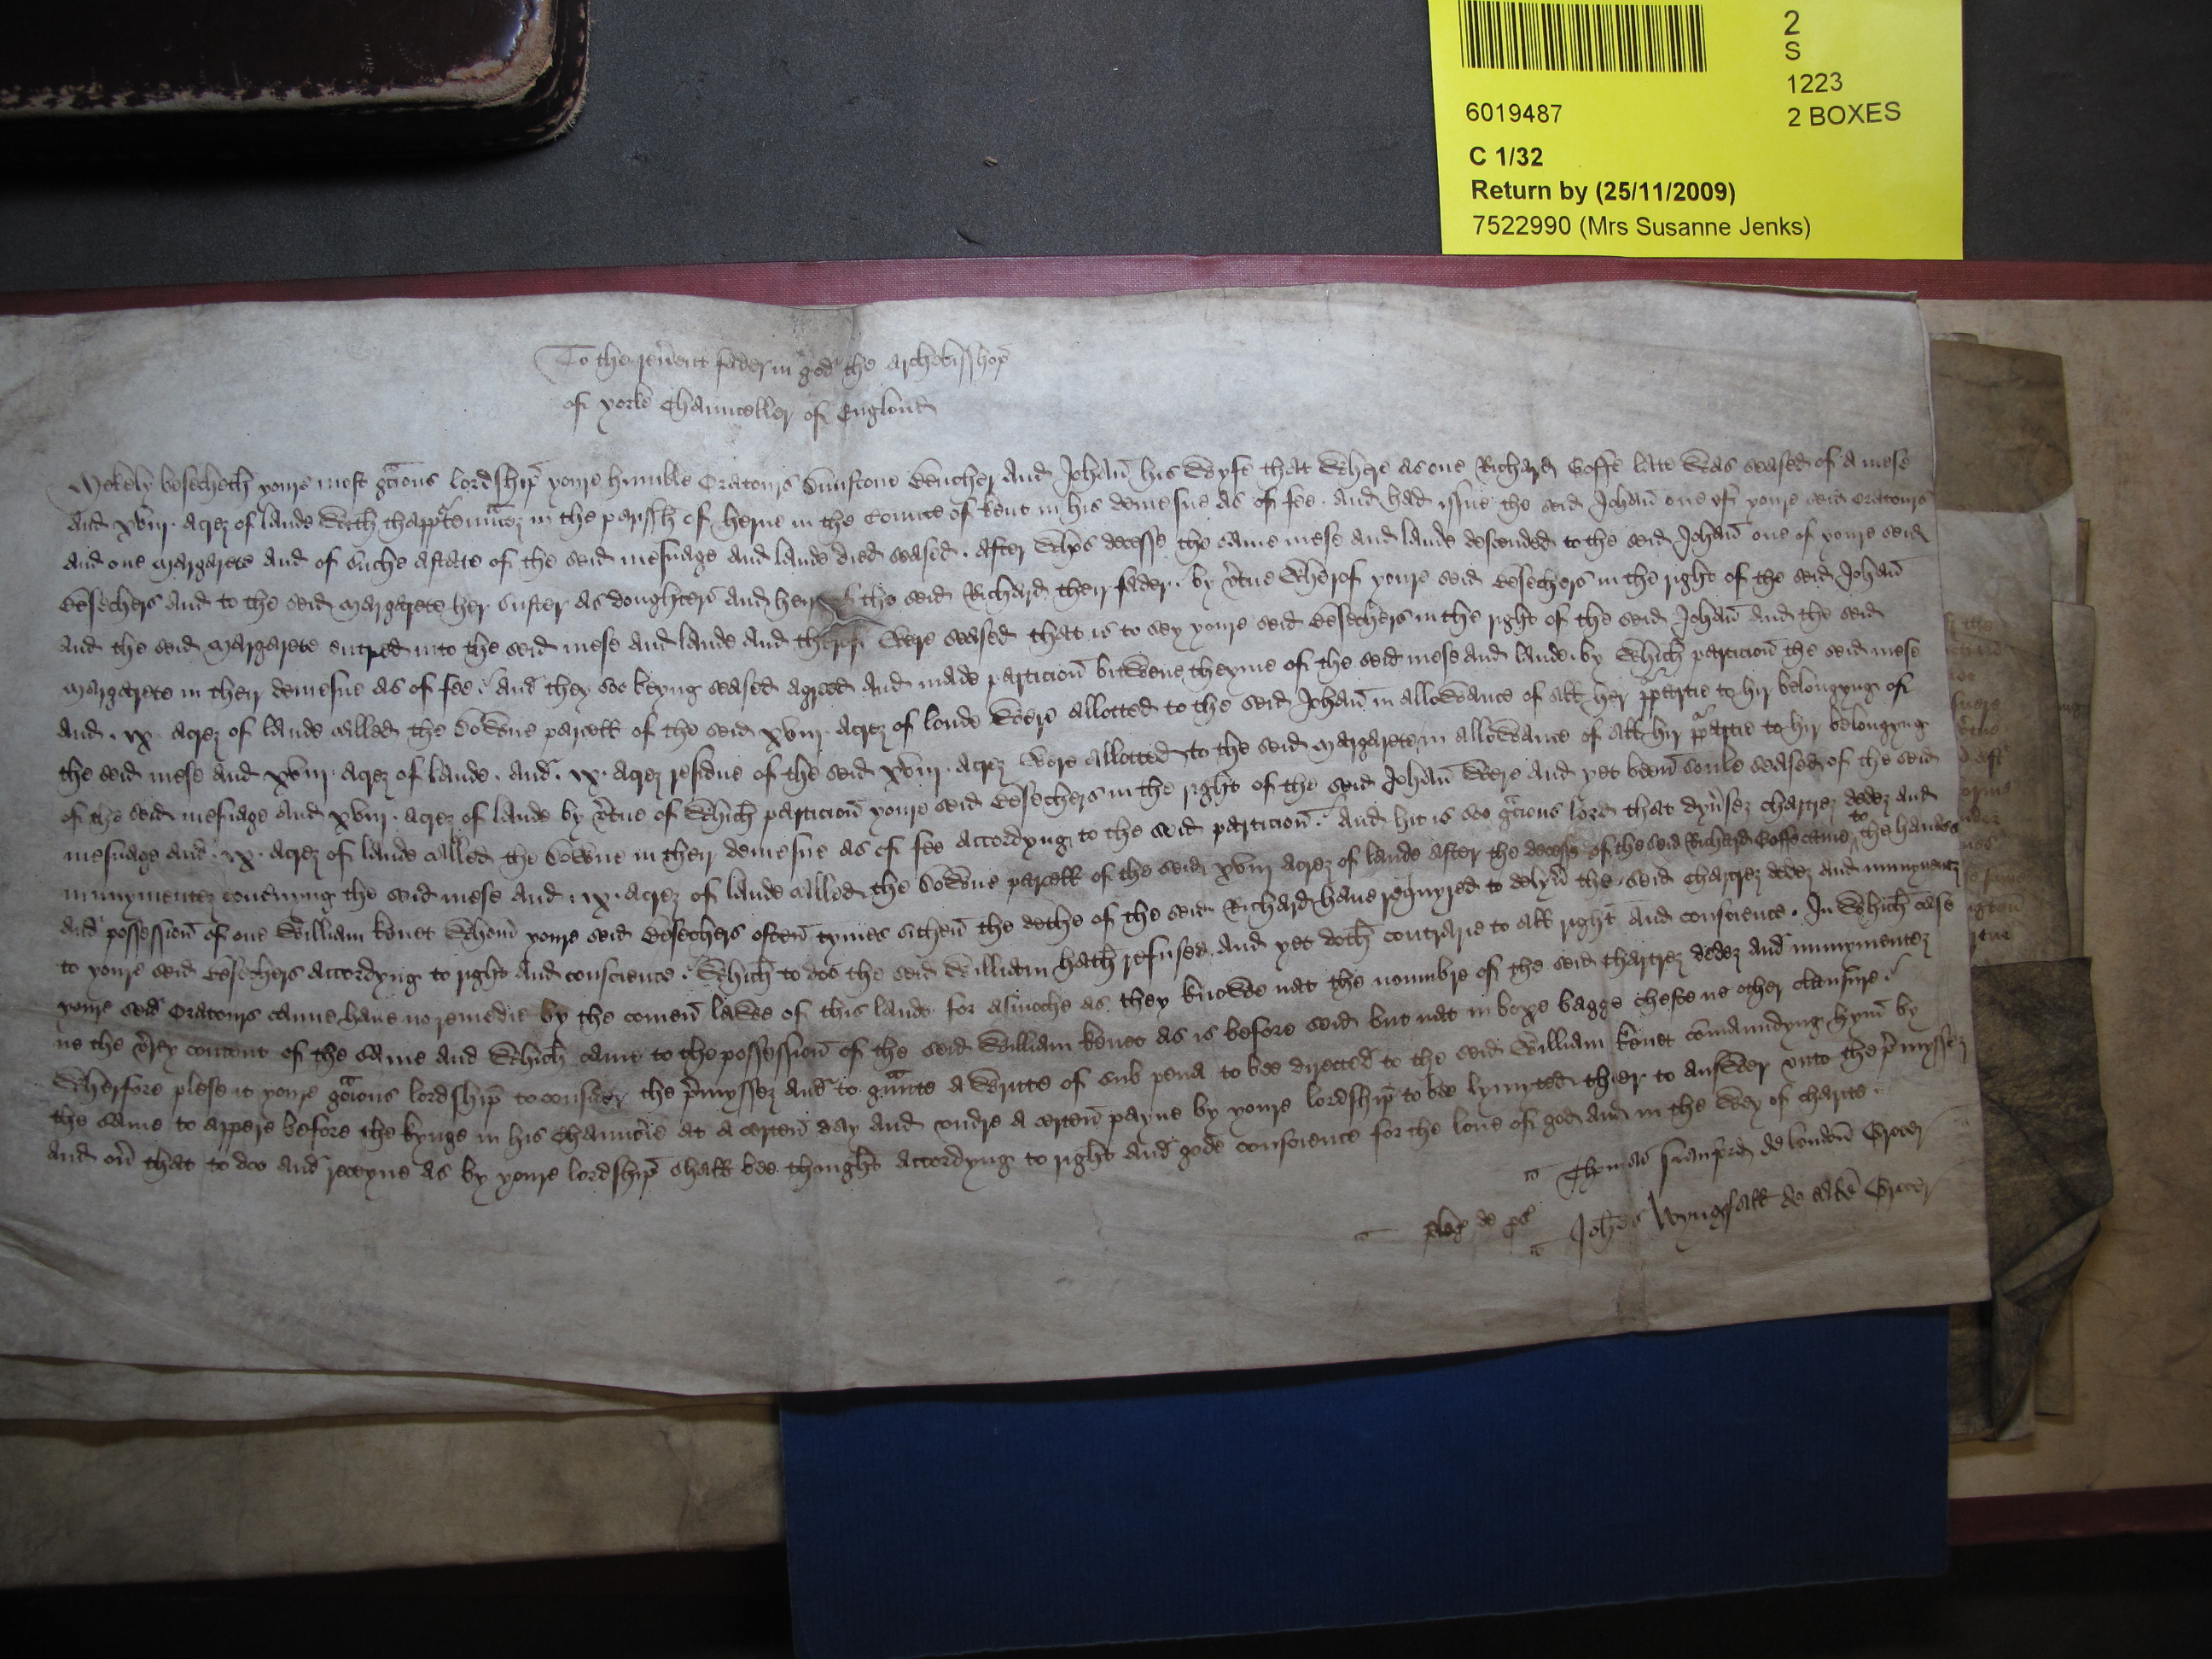 2
S
1223
6019487
2 BOXES
C 1/32
Return by (25/11/2009)
7522990 (Mrs Susanne Jenks)
To the reu'ent fader in god the Archebisshop
of yorke Chaunceller of Englond
Mekely besecheth youre most gracious lordship youre humble Oratours Dunstone and Johan his Wyfe that Where as one Richard Coffe late Was seased of a mese
and xviij acrez of lande With thapp'tenn'ncez in the parissh of Herne in the Counte of Kent in his demesne as of fee. And had issue the seid Johan one of youre seid oratours
and one Margarete and of suche astate of the seid mesuage and lande died seased. After Whos decesse the same mese and lande descended to the seid Johan one of youre seid
Besechers and to the seid Margarete her suster as doughters and heirs the seid Richard their fader. by v'tue Wherof youre seid Besechers in the right of the seid Johan
and the seid Margarete entred into the seid mese and lande and therof Were seased that is to sey youre seid Besechers in the right of the seid Johan and the seid
Margarete in their demesne as of fee. And they soo beyng seased agreed and made particion bitWene theyme of the seid mese and lande. by Which particion the seid mese
and .ix. acrez of lande called the DoWne parcell of the seid xviij acrez of londe Were allotted to the seid Johan in alloWance of all her p'partie to hir belongyng of
the seid mese and xviij. acrez of lande. And .ix. acrez residue of the seid xviij. acrez Were allotted to the seid Margarete in alloWance of all hir p'partie to hir belongyng
of the seid mesuage and xviij. acrez of lande by v'tue of Which particion youre seid Besechers in the right of the seid Johan Were and yet been soule seased of the seid
mesuage and .ix. acrez of lande called the DoWne in their demesne as of fee accordyng to the seid particion. And hit is soo gracious lord that dyu'sez chartrez dedez and
munymentez conc'nyng the seid mese and .ix. acrez of lande called the DoWne parcell of the seid xviij acrez of lande after the decesse of the seid Richard Coffe came to the handes
and possession of one William Kenet Whom youre seid Besechers often tymes sithen the dethe of the seid Richard haue requyred to delyu' the seid chartrez dedez and munymentz
to youre seid Besechers accordyng to right and conscience. Which to doo the seid William hath refused and yet doth contrarie to all right and conscience. In Which case
youre seid Oratours canne haue no remedie by the comen laWe of this lande for asmoche as they knoWe nat the noumbre of the seid chartrez dedez and munymentez
ne the v'rey content of the same and Which came to the possession of the seid William Kenet as is before seid but nat in boxe bagge cheste ne other clausure.
Wherfore plese it youre gracious lordship to consider the p'myssez and to graunte a Writte of sub pena to bee directed to the seid William Kenet comaundyng hym by
the same to appere before the kynge in his Chaunc'ie at a certen day and vndre a certen payne by youre lordship to bee lymyted ther to ansWer vnto the p'myssez
and ou' that to doo and receyue as by youre lordship shall bee thought accordyng to right and gode conscience for the loue of god and in the Wey of charite.
pleg de ps
Thomas de london Grocer
Joh'es Wyngfall de eadem Grocer